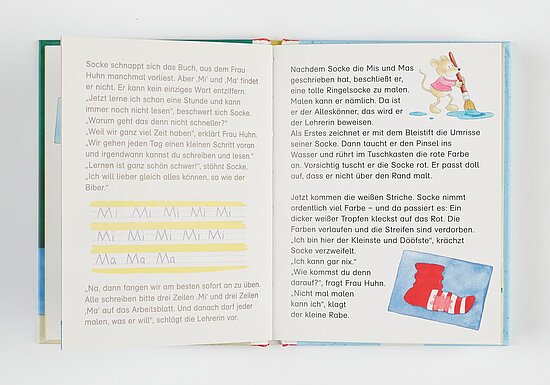 Socke schnappt sich das Buch, aus dem Frau
Huhn manchmal vorliest. Aber ‚Mi‘ und ‚Ma‘ findet
er nicht. Er kann kein einziges Wort entziffern.
„Jetzt lerne ich schon eine Stunde und kann
immer noch nicht lesen“, beschwert sich Socke.
„Warum geht das denn nicht schneller?“
„Weil wir ganz viel Zeit haben“, erklärt Frau Huhn.
„Wir gehen jeden Tag einen kleinen Schritt voran
und irgendwann kannst du schreiben und lesen.“
„Lernen ist ganz schön schwer!“, stöhnt Socke.
„Ich will lieber gleich alles können, so wie der
Biber.“
Mi Mi Mi Mi Mi
Mi Mi Mi Mi Mi
Ma Ma Ma
„Na, dann fangen wir am besten sofort an zu üben.
Alle schreiben bitte drei Zeilen ‚Mi‘ und drei Zeilen
‚Ma‘ auf das Arbeitsblatt. Und danach darf jeder
malen, was er will“, schlägt die Lehrerin vor.
Nachdem Socke die Mis und Mas
geschrieben hat, beschließt er,
eine tolle Ringelsocke zu malen.
Malen kann er nämlich. Da ist
er der Alleskönner, das wird er
der Lehrerin beweisen.
Als Erstes zeichnet er mit dem Bleistift die Umrisse
seiner Socke. Dann taucht er den Pinsel ins
Wasser und rührt im Tuschkasten die rote Farbe
an. Vorsichtig tuscht er die Socke rot. Er passt doll
auf, dass er nicht über den Rand malt.
Jetzt kommen die weißen Streifen. Socke nimmt
ordentlich viel Farbe – und da passiert es: Ein
dicker weißer Tropfen kleckst auf das Rot. Die
Farben verlaufen und die Streifen sind verdorben.
„Ich bin hier der Kleinste und Dööfste“, krächzt
Socke verzweifelt.
„Ich kann gar nix.“
„Wie kommst du denn
darauf?“, fragt Frau Huhn.
„Nicht mal malen
kann ich“, klagt
der kleine Rabe.